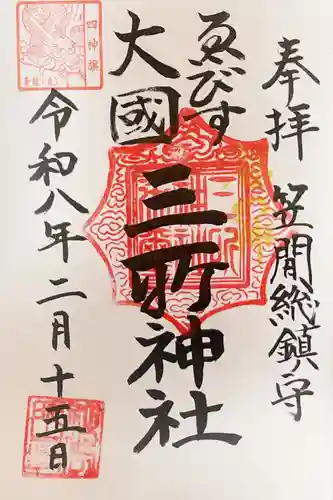 奉拝
笠間総鎮守
ゑびす
大國
三所神社
令和八年二月十五日
四神譲